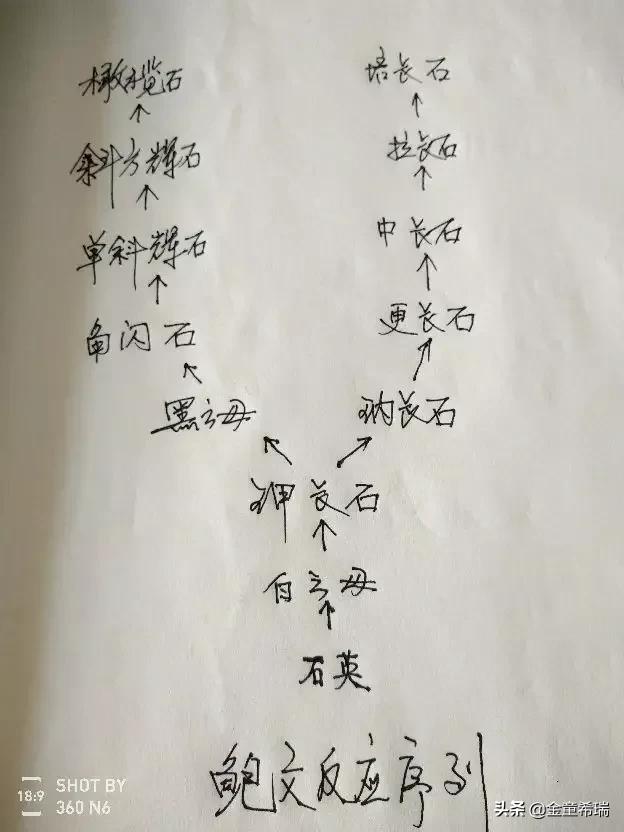 橄榄石 培长石
斜方辉石 拉长石
单斜辉石 中长石
角闪石 更长石
黑云母 钠长石
钾长石
白云母
石英
鲍文反应序列
18:9 SHOT BY
360 N6
头条 @金童希瑞